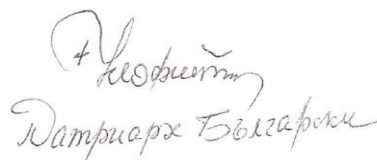 † Неофит
Патриарх Български